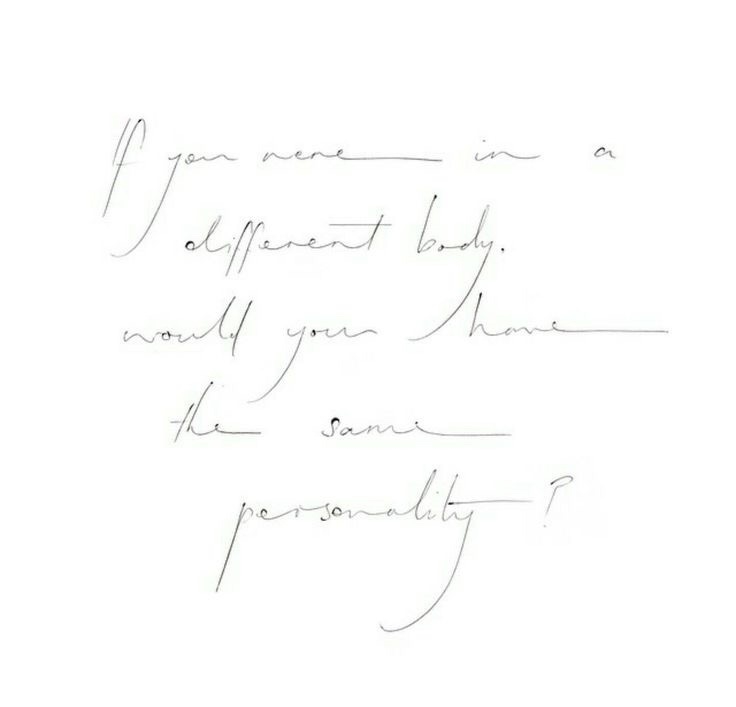 If you were in a
different body.
would you have
the same
personality?